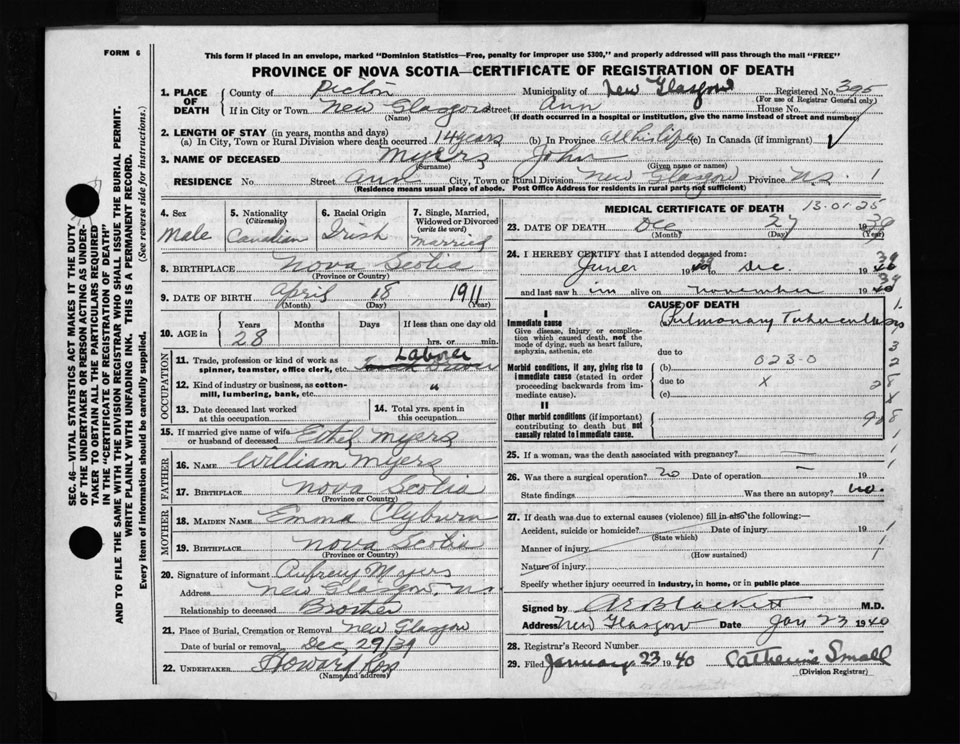 FORM 6
This form if placed in an envelope, marked "Dominion Statistics—Free, penalty for improper use $300," and properly addressed will pass through the mail "FREE"
PROVINCE OF NOVA SCOTIA—CERTIFICATE OF REGISTRATION OF DEATH
SEC. 46—VITAL STATISTICS ACT MAKES IT THE DUTY
OF THE UNDERTAKER OR PERSON ACTING AS UNDER-
TAKER TO OBTAIN ALL THE PARTICULARS REQUIRED
IN THE "CERTIFICATE OF REGISTRATION OF DEATH"
AND TO FILE THE SAME WITH THE DIVISION REGISTRAR WHO SHALL ISSUE THE BURIAL PERMIT.
WRITE PLAINLY WITH UNFADING INK. THIS IS A PERMANENT RECORD.
Every item of information should be carefully supplied. (See reverse side for instructions.)
1. PLACE OF DEATH County of Pictou Municipality of New Glasgow Registered No. 395
(For use of Registrar General only)
If in City or Town New Glasgow Street Ann House No.
(Name) (If death occurred in a hospital or institution, give the name instead of street and number)
2. LENGTH OF STAY (in years, months and days)
(a) In City, Town or Rural Division where death occurred 14 years (b) In Province all his life (c) In Canada (if immigrant)
3. NAME OF DECEASED Myers John
(Surname) (Given name or names)
RESIDENCE No Street Ann City, Town or Rural Division New Glasgow Province N.S. 1
(Residence means usual place of abode. Post Office Address for residents in rural parts not sufficient)
4. Sex
Male
5. Nationality
(Citizenship)
Canadian
6. Racial Origin
Irish
7. Single, Married, Widowed or Divorced
(write the word)
Married
8. BIRTHPLACE Nova Scotia
(Province or Country)
9. DATE OF BIRTH April 18 1911
(Month) (Day) (Year)
10. AGE in Years Months Days If less than one day
28 hrs. or min.
OCCUPATION
11. Trade, profession or kind of work as spinner, teamster, office clerk, etc. Laborer
12. Kind of industry or business, as cotton-mill, lumbering, bank, etc. "
13. Date deceased last worked at this occupation
14. Total yrs. spent in this occupation
15. If married give name of wife or husband of deceased Ethel Myers
FATHER
16. NAME William Myers
17. BIRTHPLACE Nova Scotia
(Province or Country)
MOTHER
18. MAIDEN NAME Emma Clyburn
19. BIRTHPLACE Nova Scotia
(Province or Country)
20. Signature of informant Aubrey Myers
Address New Glasgow, N.S.
Relationship to deceased Brother
21. Place of Burial, Cremation or Removal New Glasgow
Date of burial or removal Dec 29/39
22. UNDERTAKER Howard Ross
(Name and address)
MEDICAL CERTIFICATE OF DEATH 13-01-25
23. DATE OF DEATH Dec 27 1939
(Month) (Day) (Year)
24. I HEREBY CERTIFY that I attended deceased from:
June 1939 to Dec. 1939
and last saw him alive on November 1939
CAUSE OF DEATH
I
Immediate cause Pulmonary Tuberculosis
Give disease, injury or complication which caused death, not the mode of dying, such as heart failure, asphyxia, asthenia, etc
due to
Morbid conditions, if any, giving rise to immediate cause (stated in order proceeding backwards from immediate cause).
(b) 023-0
due to x
(c)
II
Other morbid conditions (if important) contributing to death but not causally related to immediate cause.
25. If a woman, was the death associated with pregnancy?
26. Was there a surgical operation? no Date of operation — 19
State findings Was there an autopsy? no.
27. If death was due to external causes (violence) fill in also the following:—
Accident, suicide or homicide? Date of injury 19
(State which)
Manner of injury
(How sustained)
Nature of injury
Specify whether injury occurred in industry, in home, or in public place
Signed by A E Blackett M.D.
Address New Glasgow Date Jan 23 1940
28. Registrar's Record Number
29. Filed January 23 1940 Catherine Small
(Division Registrar)